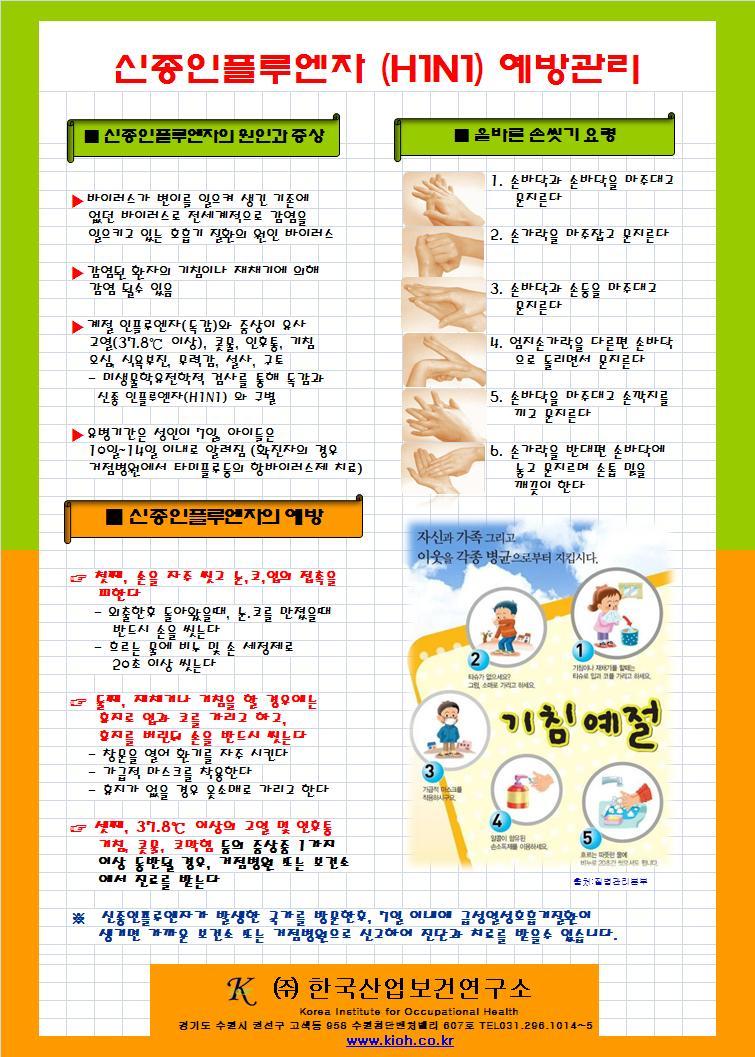 신종인플루엔자 (H1N1) 예방관리
■ 신종인플루엔자의 원인과 증상
▶ 바이러스가 변이를 일으켜 생긴 기존에
없던 바이러스로 전세계적으로 감염을
일으키고 있는 호흡기 질환의 원인 바이러스
▶ 감염된 환자의 기침이나 재채기에 의해
감염 될수 있음
▶ 계절 인플루엔자(독감)와 증상이 유사
고열(37.8℃ 이상), 콧물, 인후통, 기침
오심, 식욕부진, 무력감, 설사, 구토
- 미생물학유전학적 검사를 통해 독감과
신종 인플루엔자(H1N1) 와 구별
▶ 유병기간은 성인이 7일, 아이들은
10일~14일 이내로 알려짐 (확진자의 경우
거점병원에서 타미플루등의 항바이러스제 치료)
■ 신종인플루엔자의 예방
☞ 첫째, 손을 자주 씻고 눈,코,입의 접촉을
피한다
- 외출한후 돌아왔을때, 눈.코를 만졌을때
반드시 손을 씻는다
- 흐르는 물에 비누 및 손 세정제로
20초 이상 씻는다
☞ 둘째, 재채기나 기침을 할 경우에는
휴지로 입과 코를 가리고 하고,
휴지를 버린뒤 손을 반드시 씻는다
- 창문을 열어 환기를 자주 시킨다
- 가급적 마스크를 착용한다
- 휴지가 없을 경우 옷소매로 가리고 한다
☞ 셋째, 37.8℃ 이상의 고열 및 인후통
기침, 콧물, 코막힘 등의 증상중 1가지
이상 동반될 경우, 거점병원 또는 보건소
에서 진료를 받는다
■ 올바른 손씻기 요령
1. 손바닥과 손바닥을 마주대고
문지른다
2. 손가락을 마주잡고 문지른다
3. 손바닥과 손등을 마주대고
문지른다
4. 엄지손가락을 다른편 손바닥
으로 돌리면서 문지른다
5. 손바닥을 마주대고 손깍지를
끼고 문지른다
6. 손가락을 반대편 손바닥에
놓고 문지르며 손톱 밑을
깨끗이 한다
자신과 가족 그리고
이웃을 각종 병균으로부터 지킵시다.
1
기침이나 재채기를 할때는
티슈로 입과 코를 가리고 하세요.
2
티슈가 없으세요?
그럼, 소매로 가리고 하세요.
기침예절
3
가급적 마스크를
착용하시구요.
4
알콜이 함유된
손소독제를 이용하세요.
5
흐르는 따뜻한 물에
비누로 20초간 씻으셔도 됩니다.
출처:질병관리본부
※ 신종인플루엔자가 발생한 국가를 방문한후, 7일 이내에 급성열성호흡기질환이
생기면 가까운 보건소 또는 거점병원으로 신고하여 진단과 치료를 받을수 있습니다.
K ㈜ 한국산업보건연구소
Korea Institute for Occupational Health
경기도 수원시 권선구 고색동 958 수원첨단벤처밸리 607호 TEL031.296.1014~5
www.kioh.co.kr